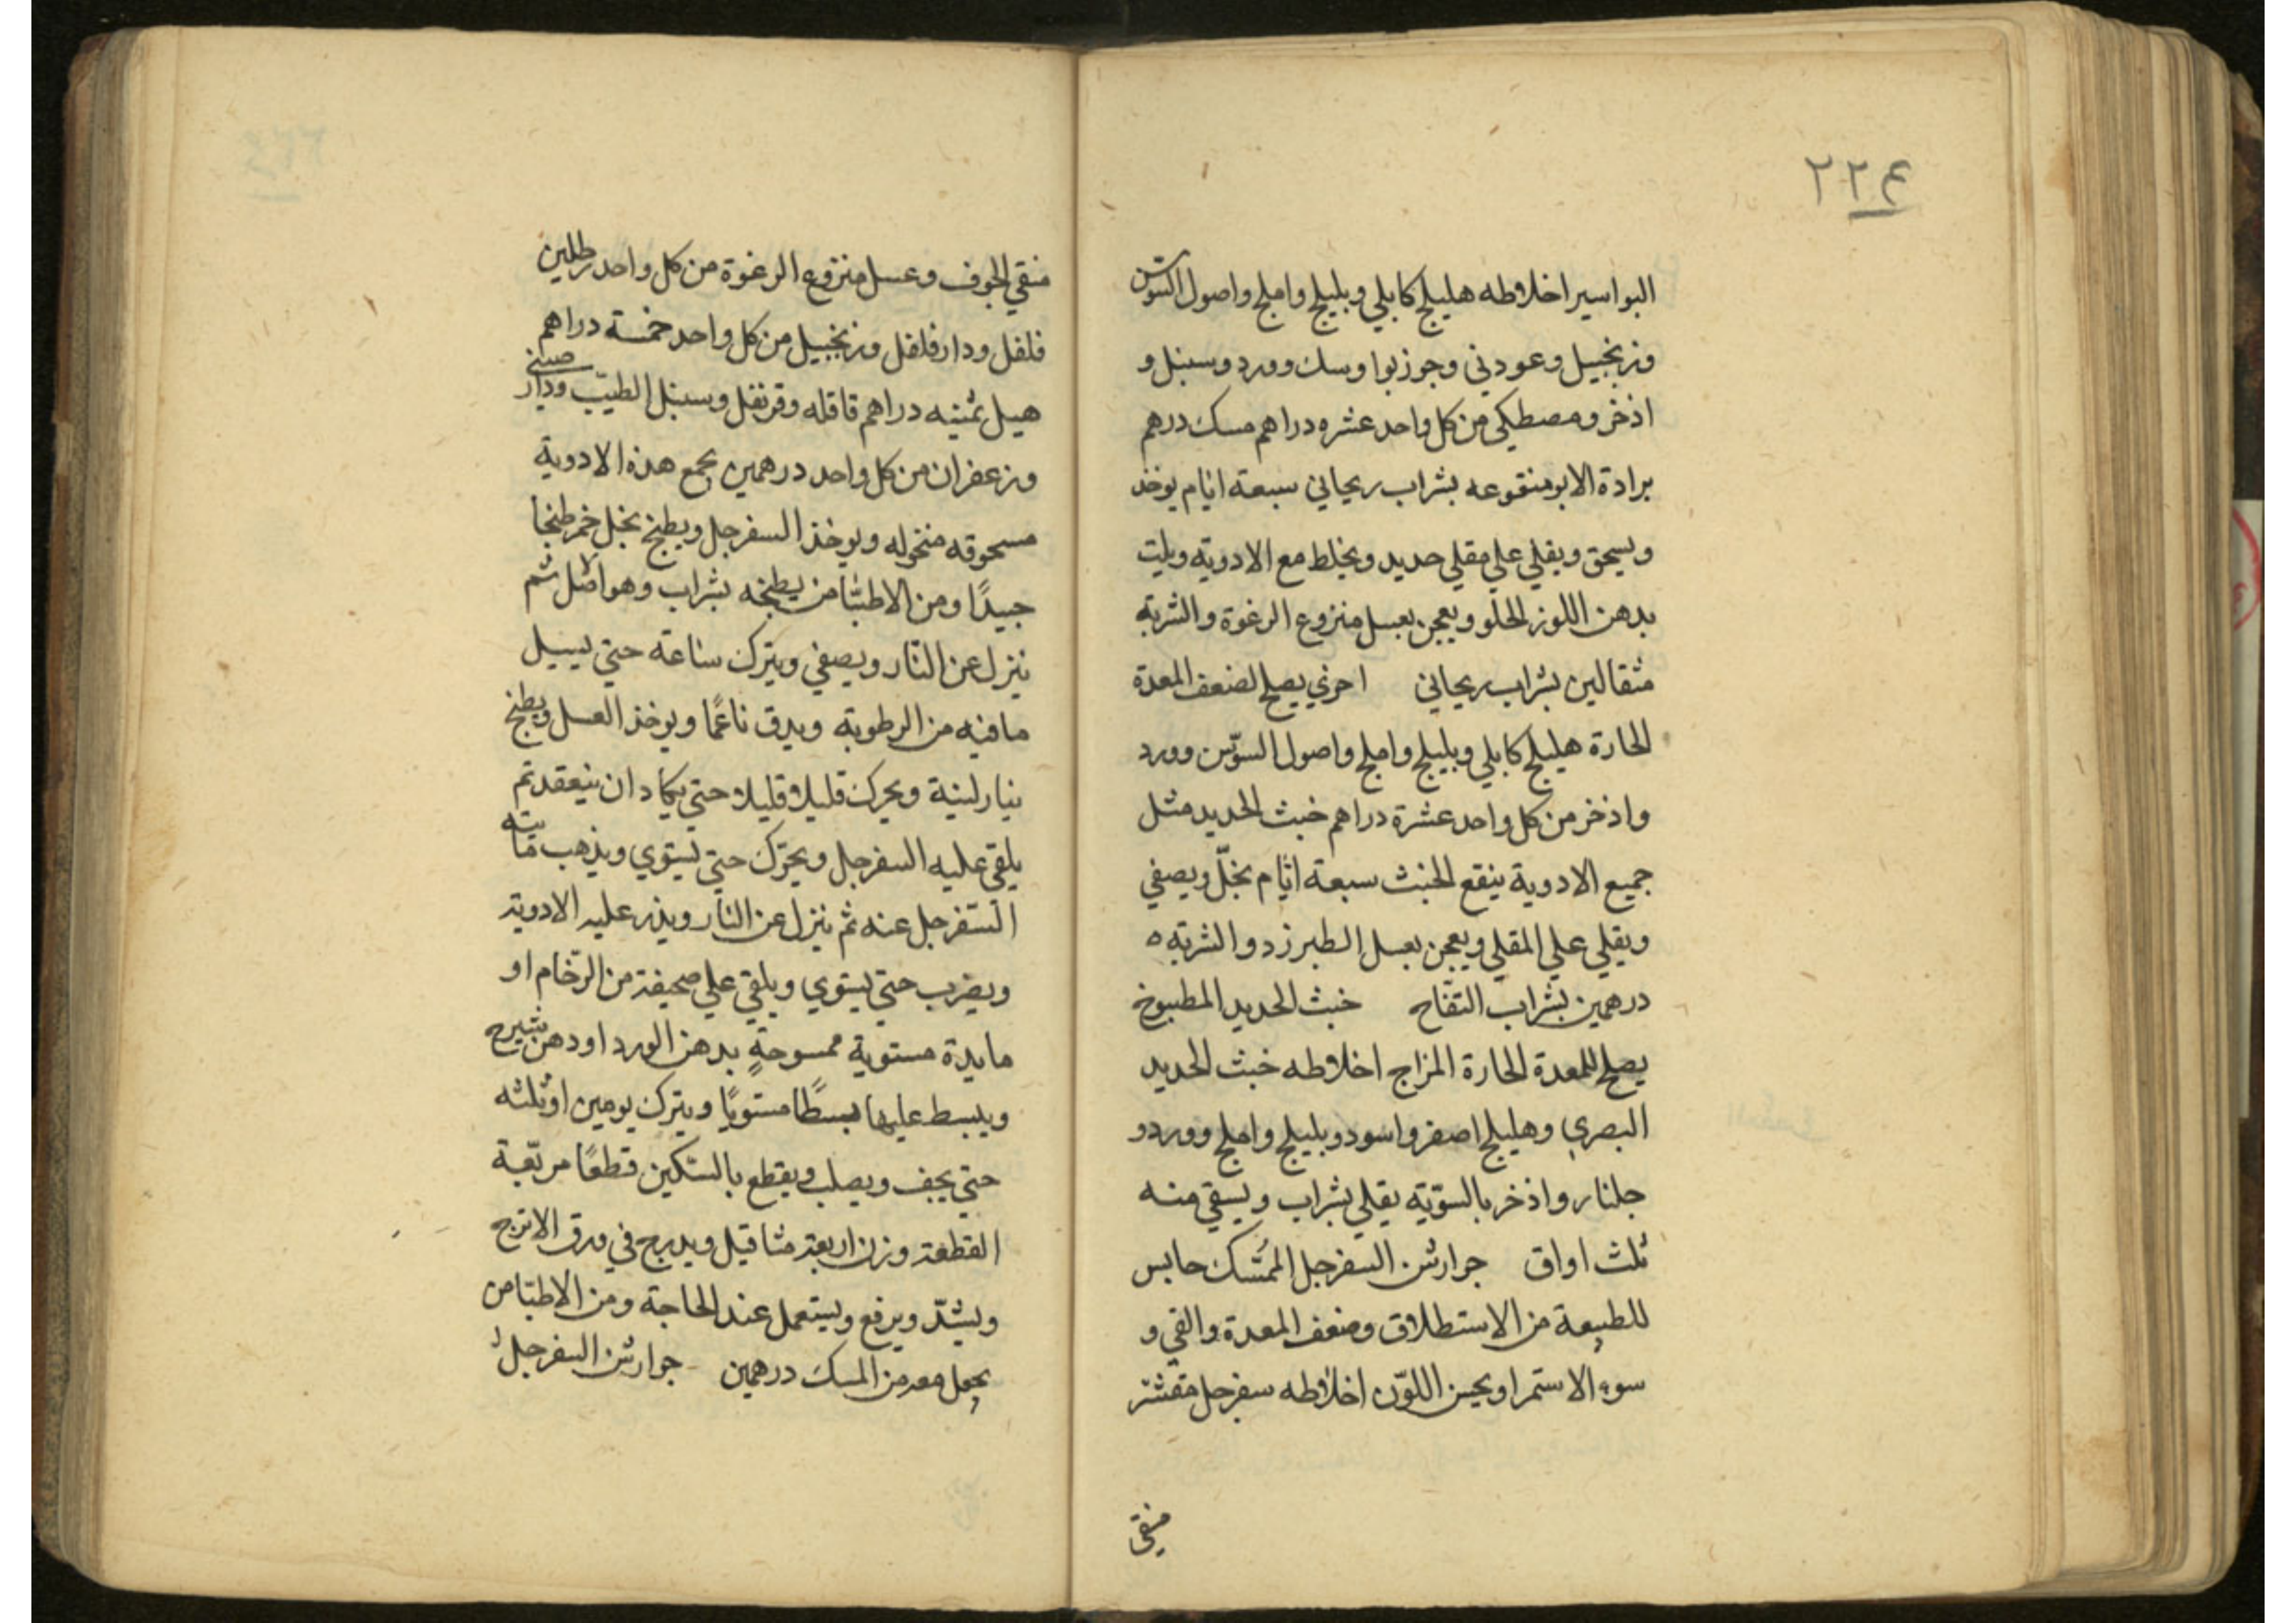 ٢٢٤
البواسير اخلاطه هليلج كابلي وبليلج واملج واصول السوس
وزنجبيل وعود ني وجوزبوا وسك وورد وسنبل و
اذخر ومصطكي من كل واحد عشره دراهم مسك درهم
برادة الابر منقوعه بشراب ريحاني سبعة ايام يوخذ
ويسحق ويقلي علي مقلي حديد ويخلط مع الادوية ويلت
بدهن اللوز الحلو ويعجن بعسل منزوع الرغوة والشربة
مثقالين بشراب ريحاني اخري يصلح لضعف المعدة
الحارة هليلج كابلي وبليلج واملج واصول السوس وورد
واذخر من كل واحد عشرة دراهم خبث الحديد مثل
جميع الادوية ينقع الخبث سبعة ايام بخلّ ويصفي
ويقلي علي المقلي ويعجن بعسل الطبرزد والشربة ه
درهمين بشراب التفاح خبث الحديد المطبوخ
يصلح للمعدة الحارة المزاج اخلاطه خبث الحديد
البصري وهليلج اصفر واسود وبليلج واملج وورد و
جلنار واذخر بالسوّية يقلي بشراب ويسقي منه
ثلث اواق جوارشن السفرجل الممسّك حابس
للطبيعة من الاستطلاق وضعف المعدة والقي و
سوء الاستمرا ويحسن اللوّن اخلاطه سفرجل مقشر
منقي
منقي الجوف وعسل منزوع الرغوة من كل واحد رطلين
فلفل ودارفلفل وزنجبيل من كل واحد خمسة دراهم
هيل ثمنيه دراهم قاقله وقرنفل وسنبل الطيب ودار صيني
وزعفران من كل واحد درهمين يجمع هذه الادوية
مسحوقه منخوله ويوخذ السفرجل ويطبخ بخل خمر طبخا
جيدًا ومن الاطبّا من يطبخه بشراب وهو الاصل ثم
ينزل عن النار ويصفي ويترك ساعة حتي يسيل
ما فيه من الرطوبة ويدق ناعمًا ويوخذ العسل ويطبخ
بنار لينة ويحرك قليلا قليلا حتي يكاد ان ينعقد ثم
يلقي عليه السفرجل ويحرّك حتي يستوي ويذهب مائيته
السّفرجل عنه ثم ينزل عن النار ويذر عليه الادوية
ويضرب حتي يستوي ويلقي علي صحيفة من الرّخام او
مايدة مستوية ممسوحةٍ بدهن الورد او دهن شيرج
ويبسط عليها بسطًا مستويًا ويترك يومين او ثلثه
حتي يجف ويصلب ويقطع بالسّكين قطعًا مربّعة
القطعة وزن اربعة مثاقيل ويدرج في ورق الاترج
ويشدّ ويرفع ويستعمل عند الحاجة ومن الاطبّا من
يجعل معه من المسك درهمين جوارشن السفرجل